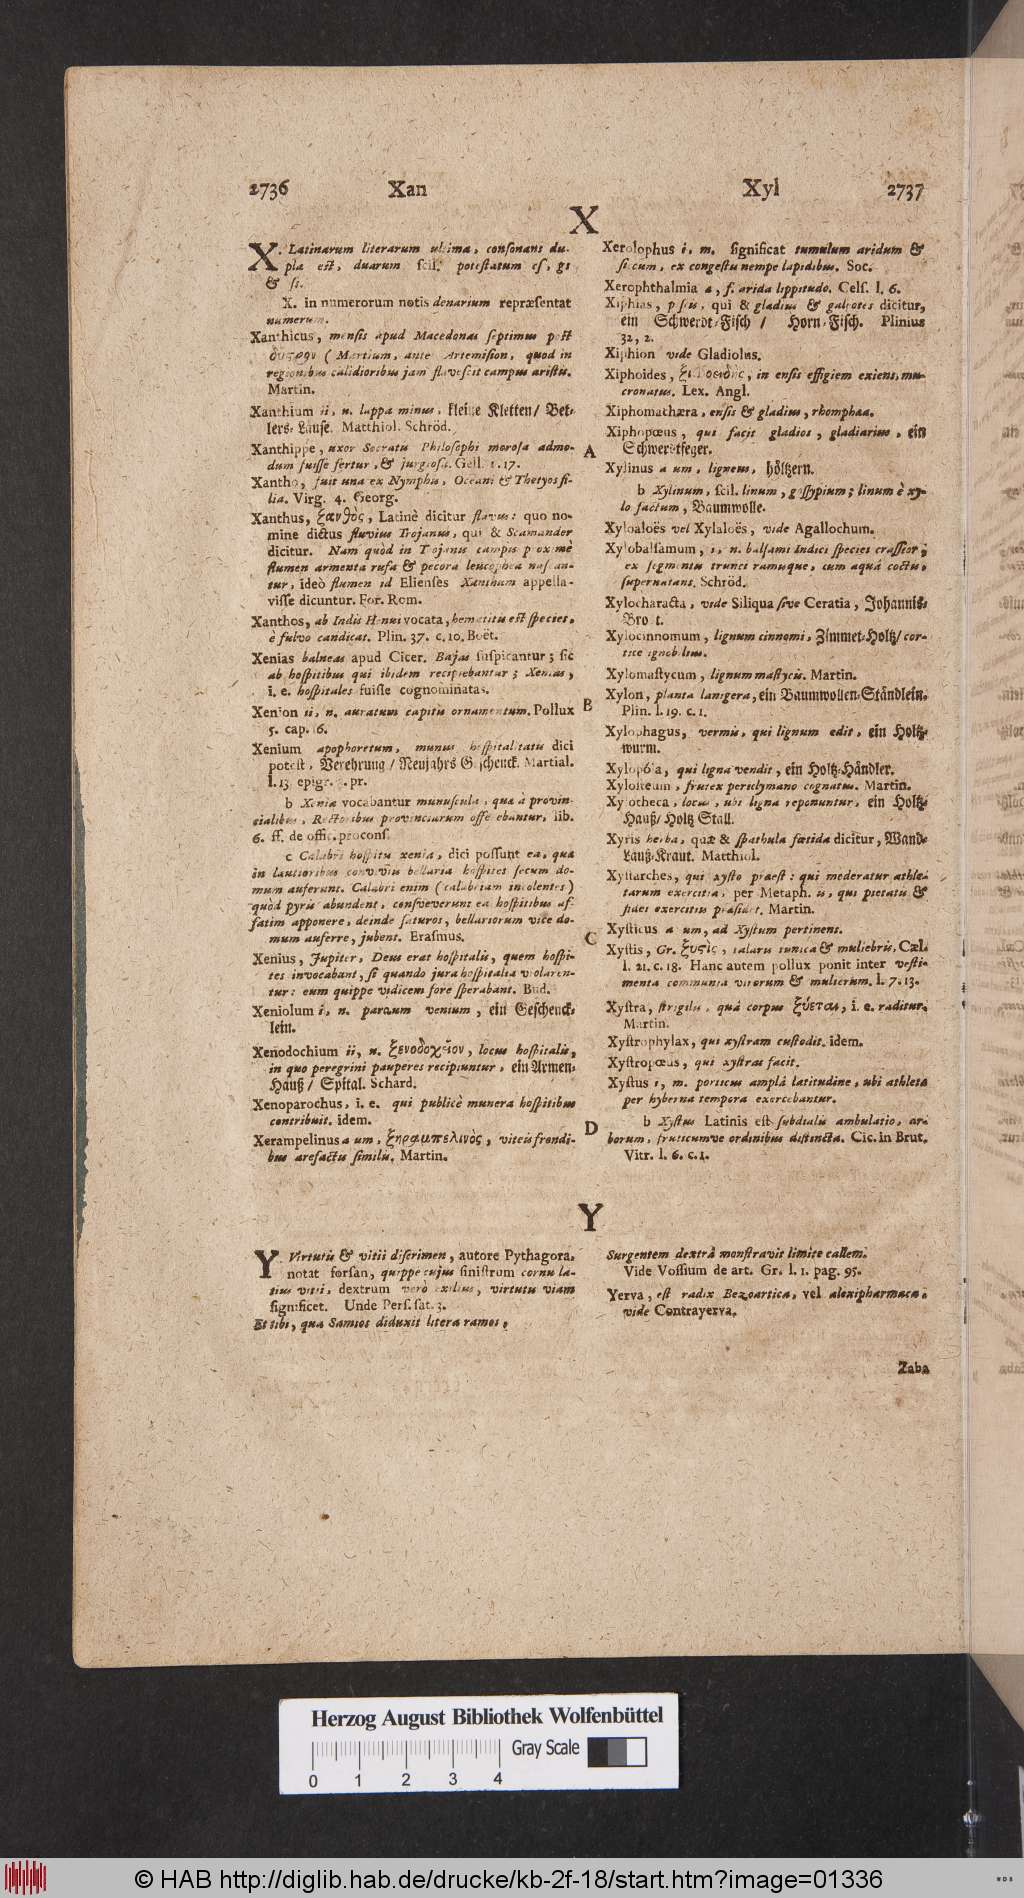 2736 Xan
Xyl 2737
X
X. Latinarum literarum ultima, consonans du-
pla est, duarum scil. potestatum cs, gs
& si.
X. in numerorum notis denarium repræsentat
numerum.
Xanthicus, mensis apud Macedonas septimus post
(Martium, ante Artemision, quod in
regionibus calidioribus jam flavescit campus aristis.
Martin.
Xanthium ii, n. lappa minus, kleine Kletten/ Bet-
lers-Läuse. Matthiol. Schröd.
Xanthippe, uxor Socratis Philosophi morosa admo-
dum fuisse fertur, & jurgiosa. Gell. 1. 17.
Xantho, fuit una ex Nymphis, Oceani & Thetyos fi-
lia. Virg. 4. Georg.
Xanthus, ξανθὸς, Latinè dicitur flavus: quo no-
mine dictus fluvius Trojanus, qui & Scamander
dicitur. Nam quòd in Trojanis campis proximè
flumen armenta rufa & pecora leucophea nascan-
tur, ideò flumen id Elienses Xanthum appella-
visse dicuntur. For. Rom.
Xanthos, ab Indis Henui vocata, hematitis est species,
è fulvo candicat. Plin. 37. c. 10. Boët.
Xenias balneas apud Cicer. Bajas suspicantur; sic
ab hospitibus qui ibidem recipiebantur; Xenias,
i. e. hospitales fuisse cognominatas.
Xenion ii, n. auratum capitis ornamentum. Pollux
5. cap. 16.
Xenium apophoretum, munus hospitalitatis dici
potest, Verehrung/ Neujahrs Geschenck. Martial.
l. 13 epigr. 3. pr.
b Xenia vocabantur munuscula, qua à provin-
cialibus, Rectoribus provinciarum offerebantur, lib.
6. ff. de offic. proconf.
c Calabri hospitis xenia, dici possunt ea, qua
in lautioribus conviviis bellaria hospites secum do-
mum auferunt. Calabri enim (calabriam incolentes)
quòd pyris abundent, consveverunt ea hospitibus af-
fatim apponere, deinde saturos, bellariorum vice do-
mum auferre, jubent. Erasmus.
Xenius, Jupiter, Deus erat hospitalis, quem hospi-
tes invocabant, si quando jura hospitalia violaren-
tur: eum quippe vidicem fore sperabant. Bud.
Xeniolum i, n. parvum xenium, ein Geschenck-
lein.
Xenodochium ii, n. ξενοδοχεῖον, locus hospitalis,
in quo peregrini pauperes recipiuntur, ein Armen-
Hauß/ Spital. Schard.
Xenoparochus, i. e. qui publicè munera hospitibus
contribuit. idem.
Xerampelinus a um, ξηραμπελινὸς, viteis frondi-
bus arefactis similis. Martin.
Xerolophus i, m. significat tumulum aridum &
siccum, ex congestu nempe lapidibus. Soc.
Xerophthalmia a, f. arida lippitudo. Cels. l. 6.
Xiphias, qui & gladius & galeotes dicitur,
ein Schwerdt-Fisch/ Horn-Fisch. Plinius
32, 2.
Xiphion vide Gladiolus.
Xiphoides, in ensis effigiem exiens, mu-
cronatus. Lex. Angl.
Xiphomathæra, ensis & gladius, rhomphæa.
Xiphopœus, qui facit gladios, gladiarius, ein
Schwerdtfeger.
A
Xylinus a um, ligneus, höltzern.
b Xylinum, scil. linum, gossypium; linum è xy-
lo factum, Baumwolle.
Xyloaloës vel Xylaloës, vide Agallochum.
Xylobalsamum, i, n. balsami Indici species crassior,
ex segmentis trunci ramisque, cum aquâ coctis,
supernatans. Schröd.
Xylocharacta, vide Siliqua sive Ceratia, Johannis-
Brodt.
Xylocinnomum, lignum cinnomi, Zimmet-Holtz/ cor-
tice ignobilius.
Xylomastycum, lignum mastycis. Martin.
Xylon, planta lanigera, ein Baumwollen-Ständlein.
Plin. l. 19. c. 1.
B
Xylophagus, vermis, qui lignum edit, ein Holtz-
wurm.
Xylopôla, qui ligna vendit, ein Holtz-Händler.
Xylosteum, frutex periclymano cognatus. Martin.
Xylotheca, locus, ubi ligna reponuntur, ein Holtz-
Hauß/ Holtz Stall.
Xyris herba, quæ & spathula fœtida dicitur, Wand-
Lauß-Kraut. Matthiol.
Xystarches, qui xysto præest: qui mederatur athle-
tarum exercitia, per Metaph. is, qui pietatis &
fidei exercitiis præsidet. Martin.
Xysticus a um, ad Xystum pertinens.
C
Xystis, Gr. ξυςὶς, talaris tunica & muliebris, Cæl.
l. 21. c. 18. Hanc autem pollux ponit inter vesti-
menta communia virorum & mulierum. l. 7. 13.
Xystra, strigilis, quâ corpus ξύεται, i. e. raditur.
Martin.
Xystrophylax, qui xystram custodit. idem.
Xystropœus, qui xystras facit.
Xystus i, m. porticus amplâ latitudine, ubi athletæ
per hyberna tempora exercebantur.
D
b Xystus Latinis est subdialis ambulatio, ar-
borum, fruticumve ordinibus distincta. Cic. in Brut.
Vitr. l. 6. c. 1.
Y
Y. Virtutis & vitii discrimen, autore Pythagora,
notat forsan, quippe cujus sinistrum cornu la-
tius vitii, dextrum verò exilius, virtutis viam
significet. Unde Pers. sat. 3.
Et tibi, qua Samios diduxit litera ramos,
Surgentem dextrâ monstravit limite callem.
Vide Vossium de art. Gr. l. 1. pag. 95.
Yerva, est radix Bezoartica, vel alexipharmaca,
vide Contrayerva.
Zaba
Herzog August Bibliothek Wolfenbüttel
Gray Scale
0 1 2 3 4
© HAB http://diglib.hab.de/drucke/kb-2f-18/start.htm?image=01336